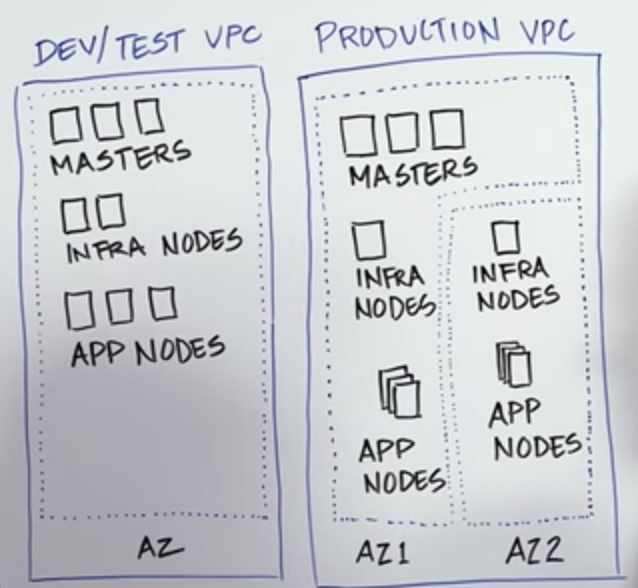 DEV/TEST VPC
MASTERS
INFRA NODES
APP NODES
AZ
PRODUCTION VPC
MASTERS
INFRA
NODES
APP
NODES
AZ1
INFRA
NODES
APP
NODES
AZ2